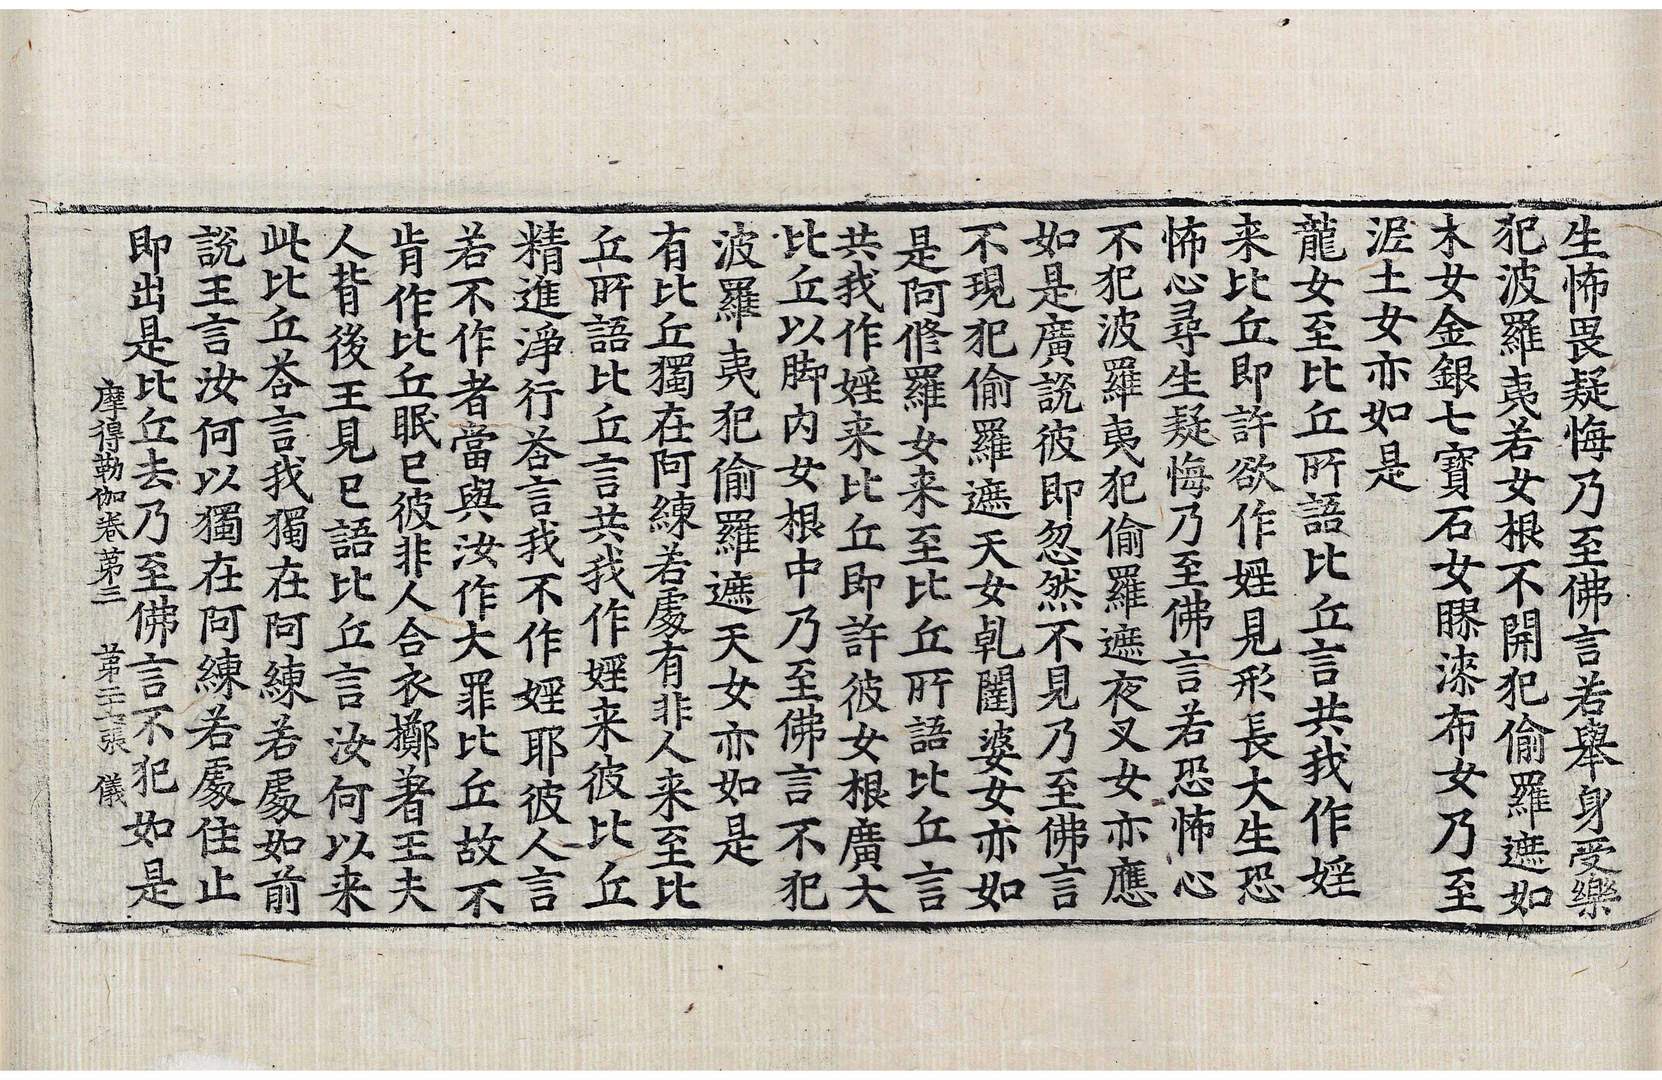 生怖畏疑悔乃至佛言若舉身受樂
犯波羅夷若女根不開犯偷羅遮如
木女金銀七寶石女膠漆布女乃至
泥土女亦如是
龍女至比丘所語比丘言共我作婬
来比丘即許欲作婬見形長大生恐
怖心尋生疑悔乃至佛言若恐怖心
不犯波羅夷犯偷羅遮夜叉女亦應
如是廣說彼即忽然不見乃至佛言
不現犯偷羅遮天女乹闥婆女亦如
是阿修羅女来至比丘所語比丘言
共我作婬来比丘即許彼女根廣大
比丘以脚內女根中乃至佛言不犯
波羅夷犯偷羅遮天女亦如是
有比丘獨在阿練若處有非人来至比
丘所語比丘言共我作婬来彼比丘
精進淨行荅言我不作婬耶彼人言
若不作者當與汝作大罪比丘故不
肯作比丘眠已彼非人合衣擲著王夫
人背後王見已語比丘言汝何以来
此比丘荅言我獨在阿練若處如前
說王言汝何以獨在阿練若處住止
即出是比丘去乃至佛言不犯如是
摩得勒伽卷第三 第二十張 儀